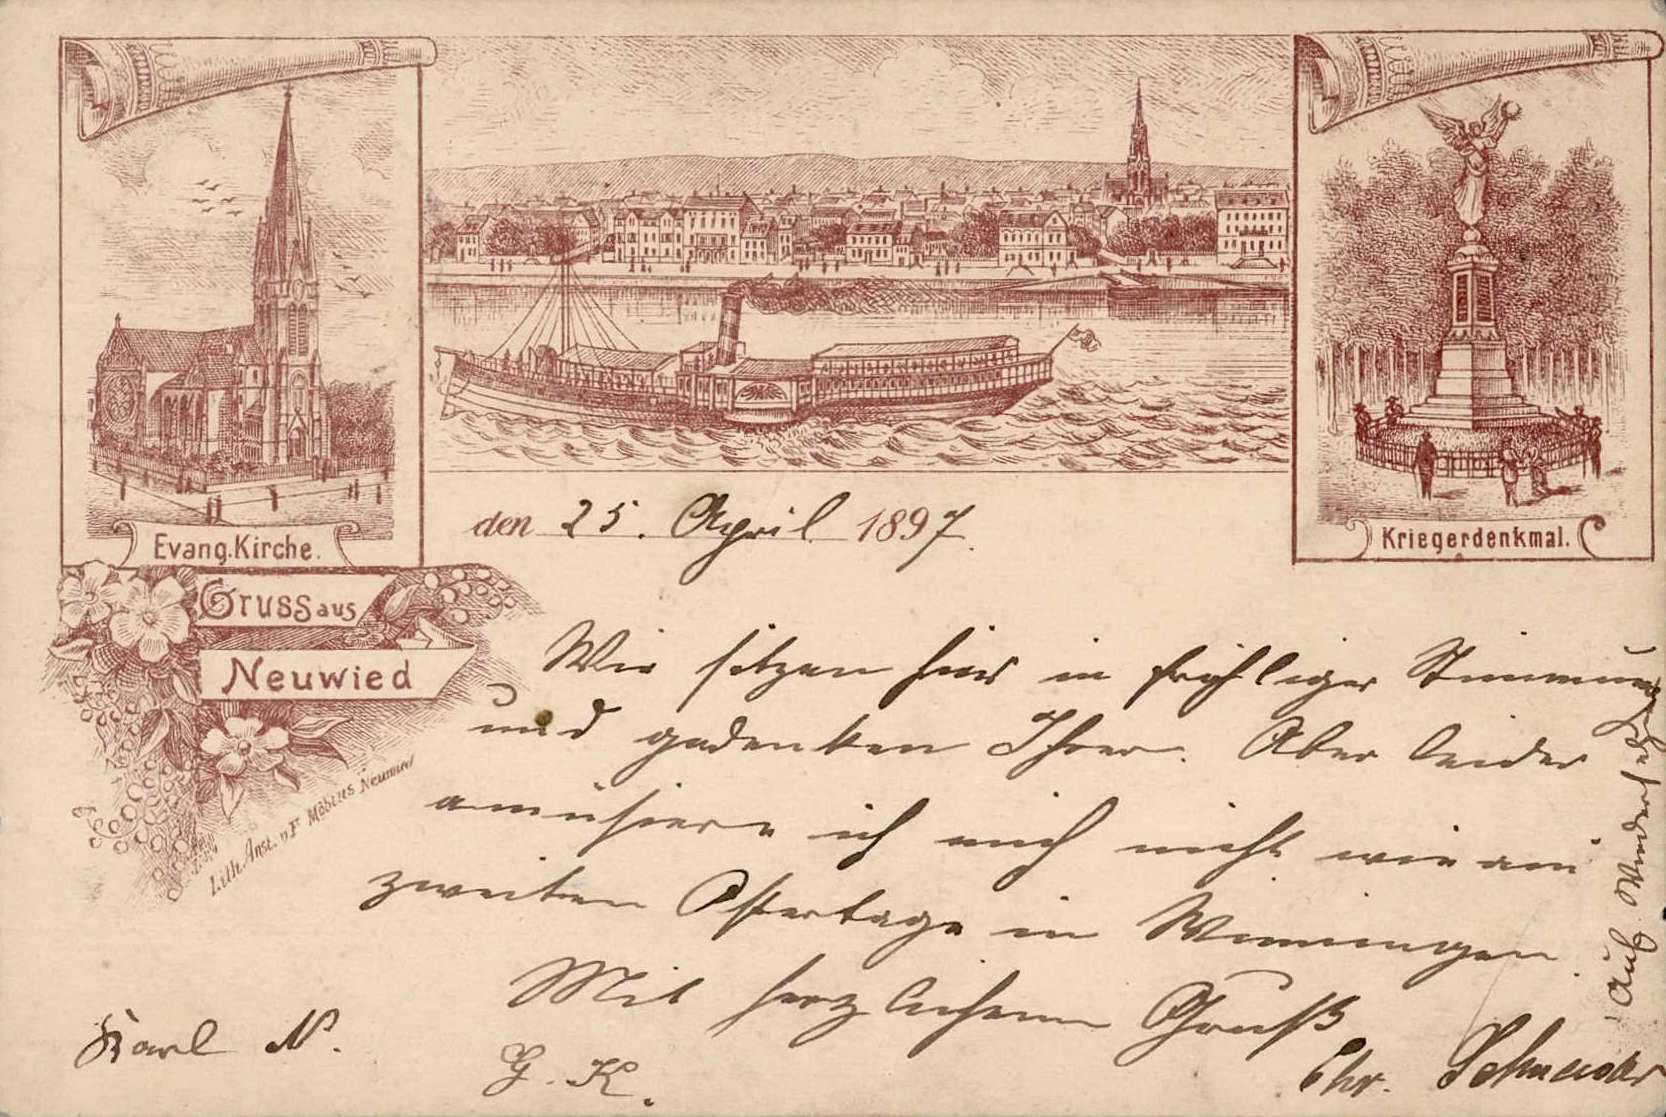 Evang. Kirche.
Kriegerdenkmal.
den 25. April 1897.
Gruss aus
Neuwied
Lith. Anst. v. F. Möbius Neuwied
Wir sitzen hier in fröhliger Stimmung
und gedenken Ihrer. Aber leider
amüsiere ich mich nicht wie am
zweiten Ostertage in Winningen.
Mit herzlichem Gruß
Chr. Schneider
Karl N.
G. K.
Auf Wiedersehn